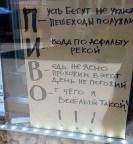 ПУСТЬ БЕГУТ НЕУКЛЮЖЕ
ПЕШЕХОДЫ ПО ЛУЖАМ
И ВОДА ПО АСФАЛЬТУ
РЕКОЙ
ВЕДЬ НЕ ЯСНО
ПРОХОЖИМ В ЭТОТ
ДЕНЬ НЕПОГОЖИЙ
ОТ ЧЕГО Я
ВЕСЁЛЫЙ ТАКОЙ
!!!